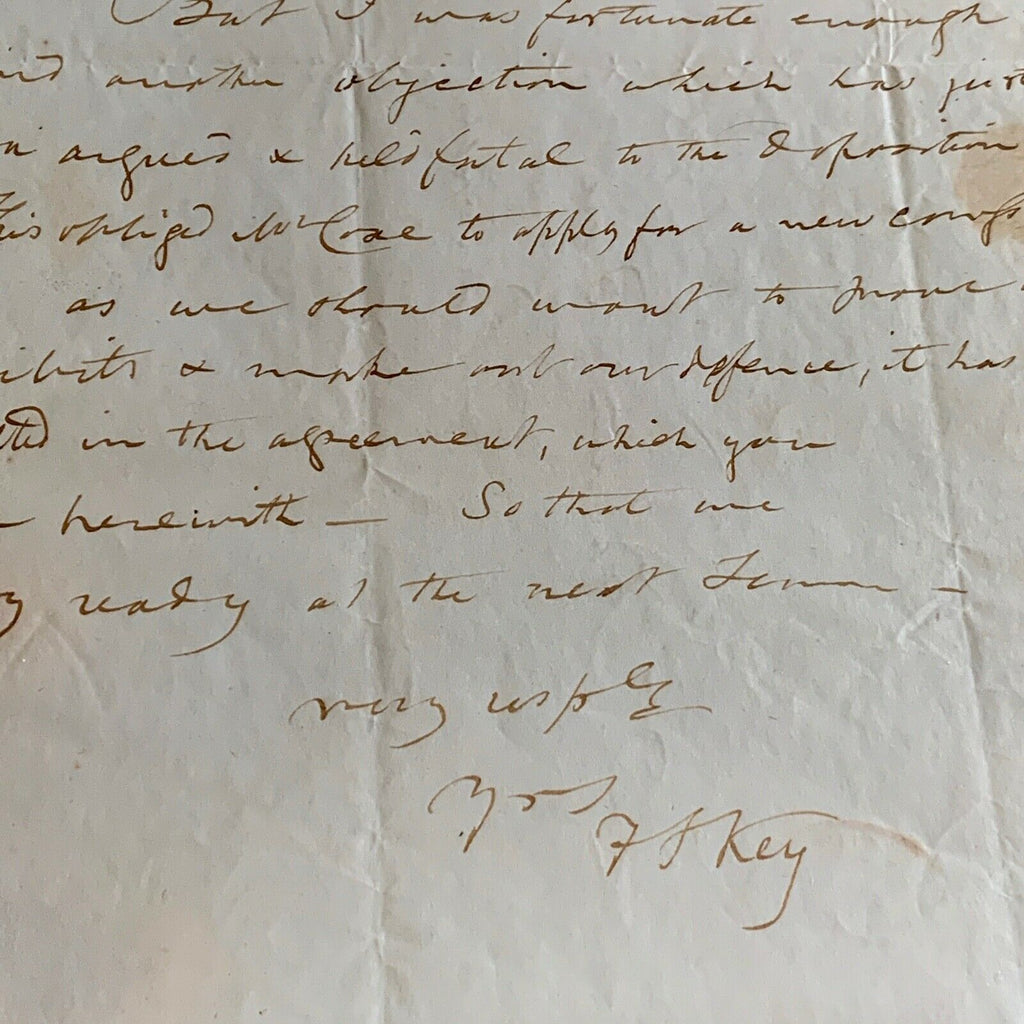 But I was fortunate enough
another objection which has just
argued & held fatal to the deposition
This obliged Mr Coxe to apply for a new
as we should want to prove
ibits & make out our deffence, it has
in the agreement, which you
— herewith — So that we
ready at the next Term —
very resply
Yrs
F S Key